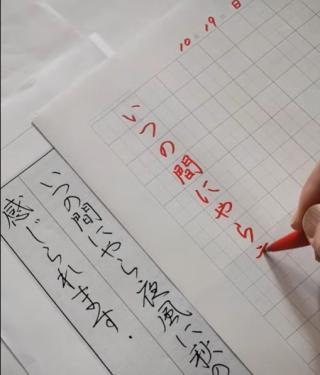 10.19.日
いつの間にやら
いつの間にやら夜風に秋の
感じられます.